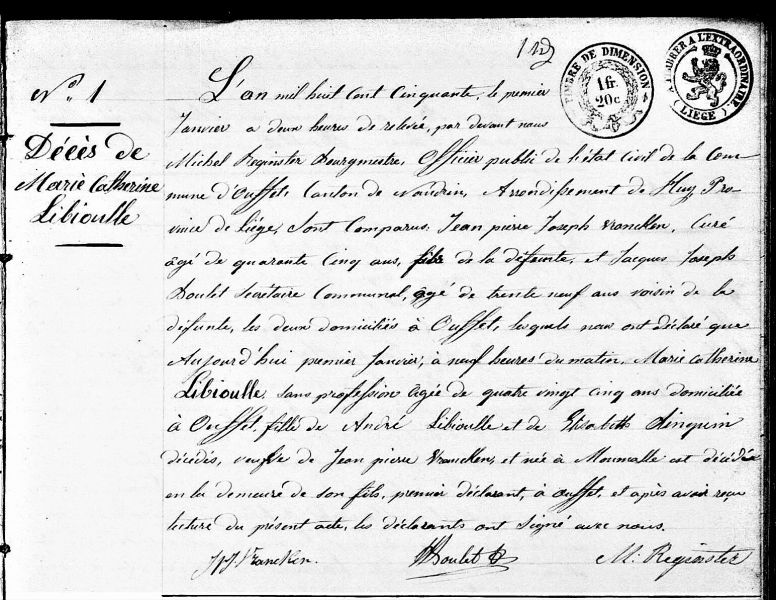 TIMBRE DE DIMENSION
1 fr. 20 c.
A L'EXTRAORDINAIRE
(LIEGE)
N° 1
Décès de
Marie Catherine
Libioulle
L'an mil huit cent cinquante, le premier
Janvier a deux heures de relevée, par devant nous
Michel Reginster Bourgmestre, Officier public de l'état civil de la Com-
mune d'Ouffet, Canton de Nandrin, Arrondissement de Huy, Pro-
vince de Liége, sont Comparus: Jean pierre Joseph Vrancken, Curé
âgé de quarante cinq ans, fils de la défunte, et Jacques Joseph
Doulet Secrétaire Communal, âgé de trente neuf ans voisin de la
défunte, les deux domiciliés à Ouffet, lesquels nous ont déclaré que
Aujourd'hui premier Janvier, à neuf heures du matin, Marie Catherine
Libioulle, sans profession âgée de quatre vingt cinq ans domiciliée
à Ouffet, fille de André Libioulle et de Elisabeth
décédés, veuve de Jean pierre Vrancken, et née à Momalle est décédée
en la demeure de son fils, premier déclarant, à Ouffet, et après avoir reçu
lecture du présent acte, les déclarants ont signé avec nous.
JPJ Vrancken. Doulet M: Reginster